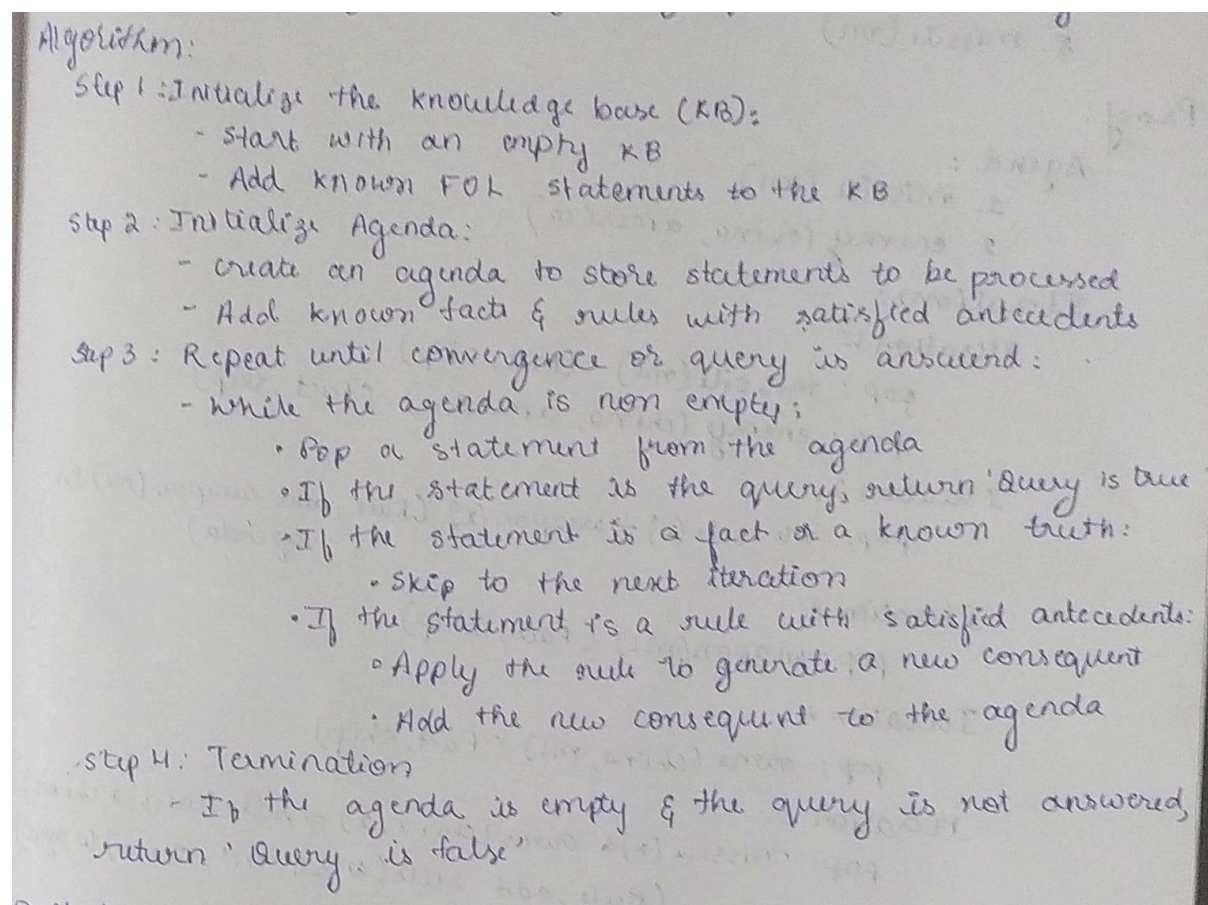 Algorithm:
Step 1 : Initialize the knowledge base (KB):
- Start with an empty KB
- Add known FOL statements to the KB
Step 2 : Initialize Agenda:
- create an agenda to store statements to be processed
- Add known facts & rules with satisfied antecedents
Step 3 : Repeat until convergence or query is answered :
- While the agenda is non empty :
• Pop a statement from the agenda
• If the statement is the query, return 'Query is true
• If the statement is a fact or a known truth :
• Skip to the next iteration
• If the statement is a rule with satisfied antecedents:
• Apply the rule to generate a new consequent
• Add the new consequent to the agenda
Step 4 : Termination
- If the agenda is empty & the query is not answered,
return 'Query is false'